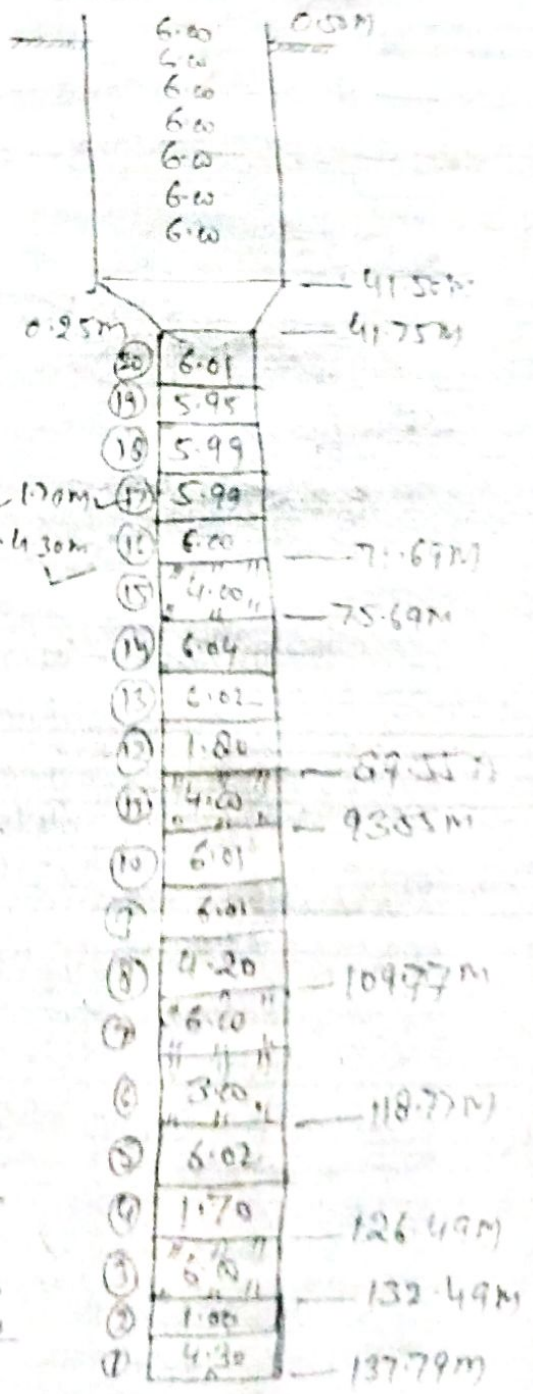 6.00 0.50M
6.00
6.00
6.00
6.00
6.00
6.00
41.50M
0.25m 41.75M
20 6.01
19 5.95
18 5.99
1.70m 17 5.99
4.30m 16 6.00
71.69M
15 4.00
75.69M
14 6.04
13 6.02
12 1.80
11 4.00
93.55M
10 6.01
9 6.01
8 4.20 109.77M
7 6.00
6 3.00 118.77M
5 6.02
4 1.70
126.49M
3 6.00
132.49M
2 1.00
1 4.30 137.79M